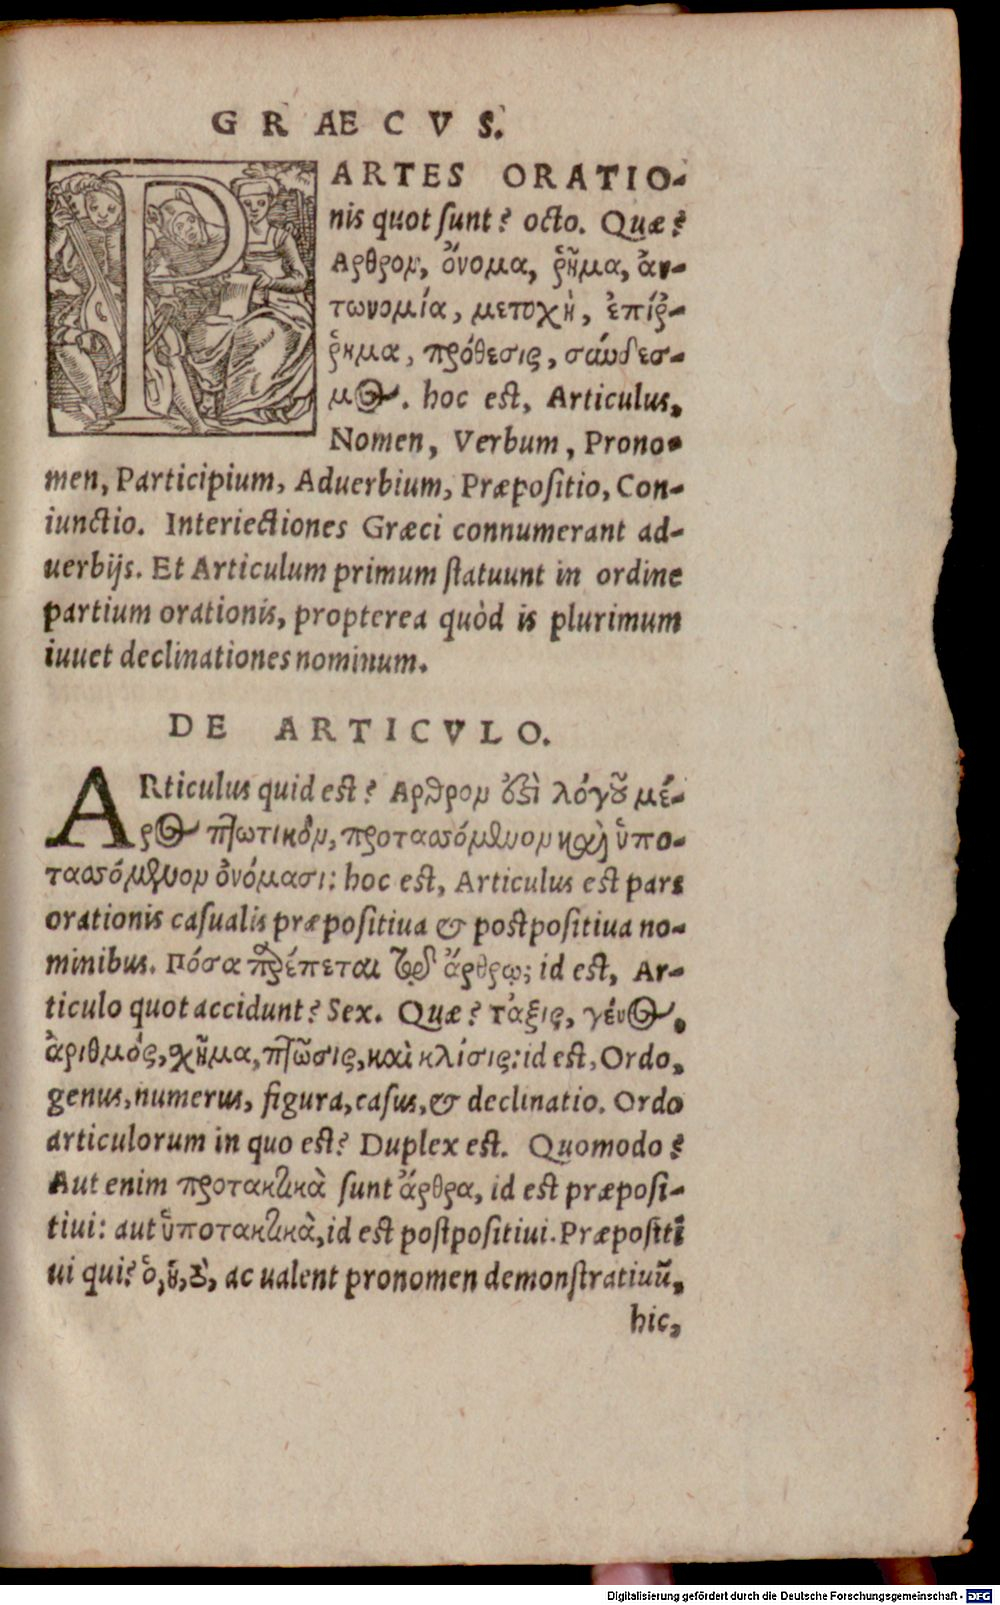 GRÆCVS.
PARTES ORATIO-
nis quot sunt? octo. Quæ?
Αρθρον, ὄνομα, ῥῆμα, ἀν-
τωνομία, μετοχὴ, ἐπίῤ-
ῥημα, πρόθεσις, σύνδεσ-
μος. hoc est, Articulus,
Nomen, Verbum, Prono-
men, Participium, Aduerbium, Præpositio, Con-
iunctio. Interiectiones Græci connumerant ad-
uerbijs. Et Articulum primum statuunt in ordine
partium orationis, propterea quòd is plurimum
iuuet declinationes nominum.
DE ARTICVLO.
ARticulus quid est? Αρθρον ἐστὶ λόγου μέ-
ρος πτωτικὸν, προτασσόμενον καὶ ὑπο-
τασσόμενον ὀνόμασι: hoc est, Articulus est pars
orationis casualis præpositiua & postpositiua no-
minibus. Πόσα παρέπεται τῷ ἄρθρῳ; id est, Ar-
ticulo quot accidunt? Sex. Quæ? τάξις, γένος,
ἀριθμός, σχῆμα, πτῶσις, καὶ κλίσις: id est, Ordo,
genus, numerus, figura, casus, & declinatio. Ordo
articulorum in quo est? Duplex est. Quomodo?
Aut enim προτακτικὰ sunt ἄρθρα, id est præposi-
tiui: aut ὑποτακτικὰ, id est postpositiui. Præpositi
ui qui? ὁ, ἡ, τὸ, ac ualent pronomen demonstratiuū,
hic,
Digitalisierung gefördert durch die Deutsche Forschungsgemeinschaft - DFG